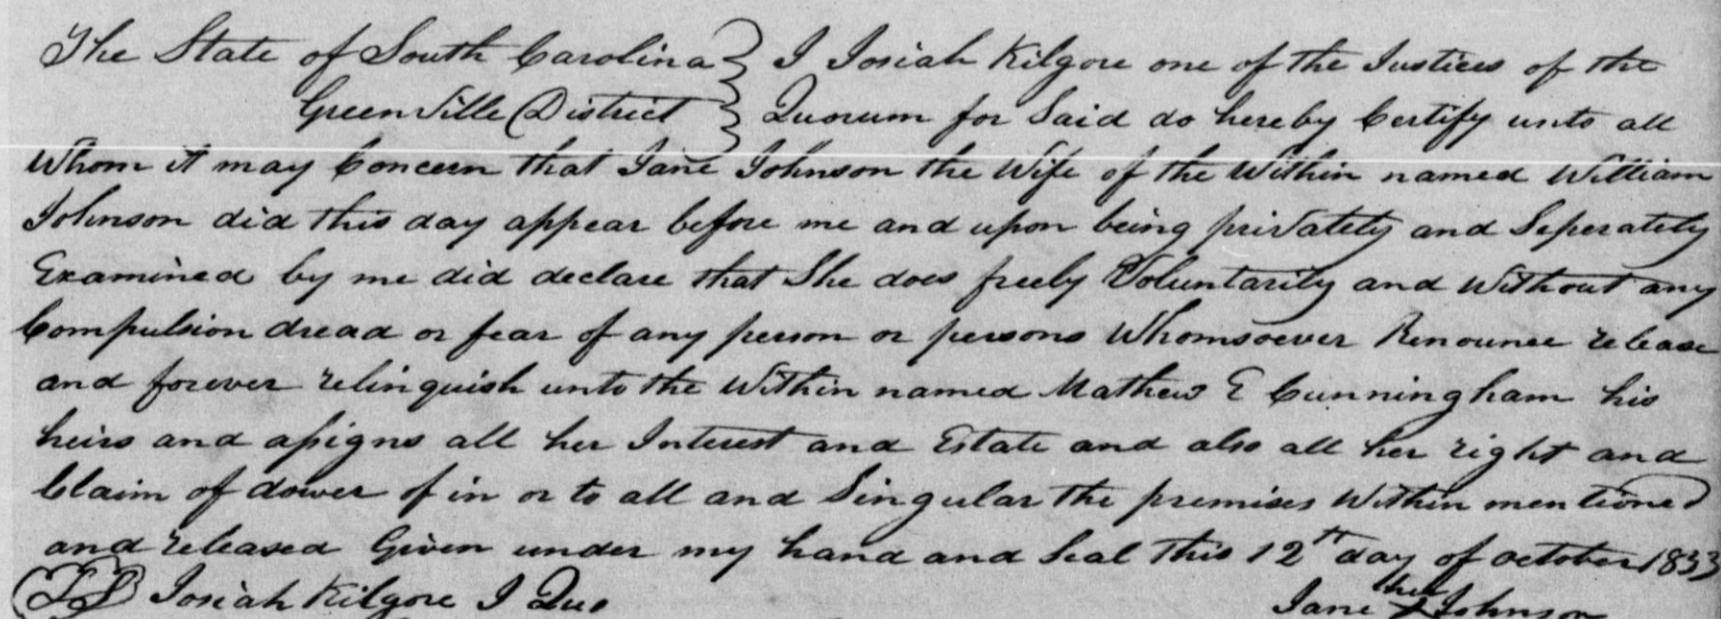 The State of South Carolina } I Josiah Kilgore one of the Justices of the
Greenville District } Quorum for Said do hereby Certify unto all
Whom it may Concern that Jane Johnson the Wife of the Within named William
Johnson did this day appear before me and upon being privately and Seperately
Examined by me did declare that She does freely Voluntarily and Without any
Compulsion dread or fear of any person or persons Whomsoever Renounce release
and forever relinquish unto the Within named Mathew E Cunningham his
heirs and assigns all her Interest and Estate and also all her right and
Claim of dower of in or to all and Singular the premises Within mentioned
and released Given under my hand and Seal This 12th day of october 1833
LS Josiah Kilgore J Quo
Jane her X Johnson